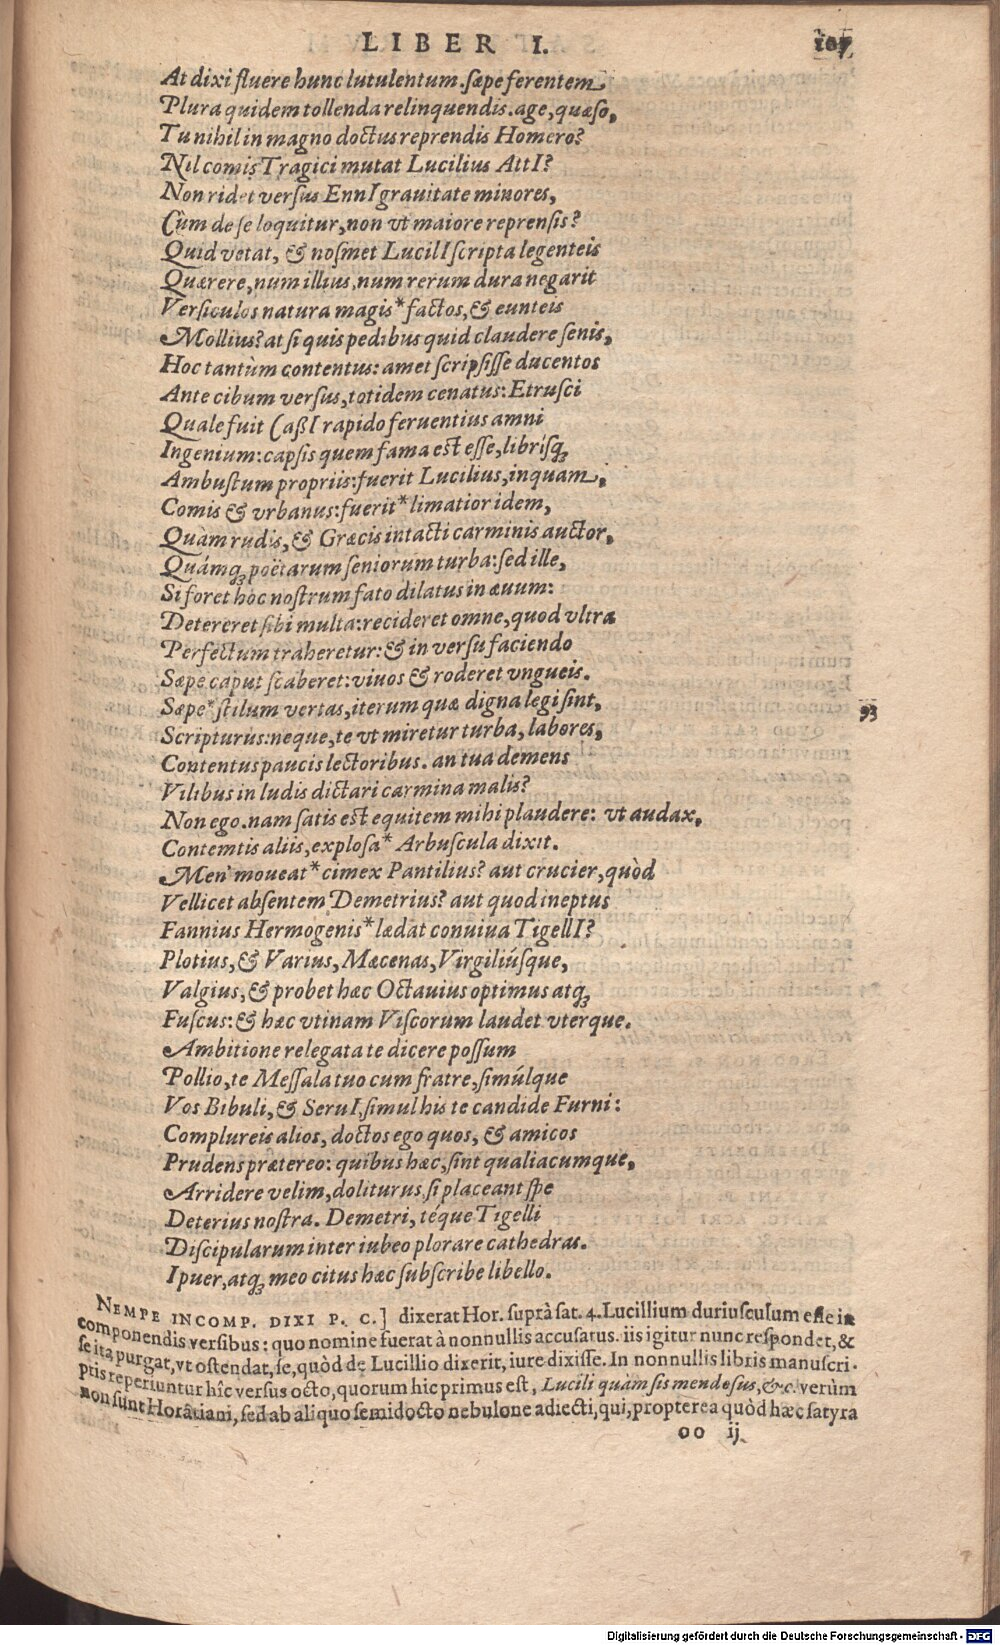 LIBER I.
107
At dixi fluere hunc lutulentum. sæpe ferentem
Plura quidem tollenda relinquendis. age, quæso,
Tu nihil in magno doctus reprendis Homero?
Nil comis Tragici mutat Lucilius AttI?
Non ridet versus EnnI grauitate minores,
Cùm de se loquitur, non vt maiore reprensis?
Quid vetat, & nosmet LucilI scripta legenteis
Quærere, num illius, num rerum dura negarit
Versiculos natura magis* factos, & eunteis
Mollius? at si quis pedibus quid claudere senis,
Hoc tantùm contentus: amet scripsisse ducentos
Ante cibum versus, totidem cenatus: Etrusci
Quale fuit CaßI rapido feruentius amni
Ingenium: capsis quem fama est esse, librísq́
Ambustum propriis: fuerit Lucilius, inquam,
Comis & vrbanus: fuerit* limatior idem,
Quàm rudis, & Græcis intacti carminis auctor,
Quámq́ poëtarum seniorum turba: sed ille,
Si foret hoc nostrum fato dilatus in æuum:
Detereret sibi multa: recideret omne, quod vltra
Perfectum traheretur: & in versu faciendo
Sæpe caput scaberet: viuos & roderet vngueis.
Sæpe* stilum vertas, iterum quæ digna legi sint,
93
Scripturus: neque, te vt miretur turba, labores,
Contentus paucis lectoribus. an tua demens
Vilibus in ludis dictari carmina malis?
Non ego. nam satis est equitem mihi plaudere: vt audax,
Contemtis aliis, explosa* Arbuscula dixit.
Men' moueat* cimex Pantilius? aut crucier, quòd
Vellicet absentem Demetrius? aut quod ineptus
Fannius Hermogenis* lædat conuiua TigellI?
Plotius, & Varius, Mæcenas, Virgiliúsque,
Valgius, & probet hæc Octauius optimus atq́
Fuscus: & hæc vtinam Viscorum laudet vterque.
Ambitione relegata te dicere possum
Pollio, te Messala tuo cum fratre, simúlque
Vos Bibuli, & SeruI, simul his te candide Furni:
Complureis alios, doctos ego quos, & amicos
Prudens prætereo: quibus hæc, sint qualiacumque,
Arridere velim, doliturus, si placeant spe
Deterius nostra. Demetri, téque Tigelli
Discipularum inter iubeo plorare cathedras.
I puer, atq́ meo citus hæc subscribe libello.
NEMPE INCOMP. DIXI P. C.] dixerat Hor. suprà sat. 4. Lucillium duriusculum esse in
componendis versibus: quo nomine fuerat à nonnullis accusatus. iis igitur nunc respondet, &
se ita purgat, vt ostendat, se, quòd de Lucillio dixerit, iure dixisse. In nonnullis libris manuscri-
ptis reperiuntur hîc versus octo, quorum hic primus est, Lucili quàm sis mendosus, &c. verùm
non sunt Horatiani, sed ab aliquo semidocto nebulone adiecti, qui, propterea quòd hæc satyra
oo ij
Digitalisierung gefördert durch die Deutsche Forschungsgemeinschaft - DFG